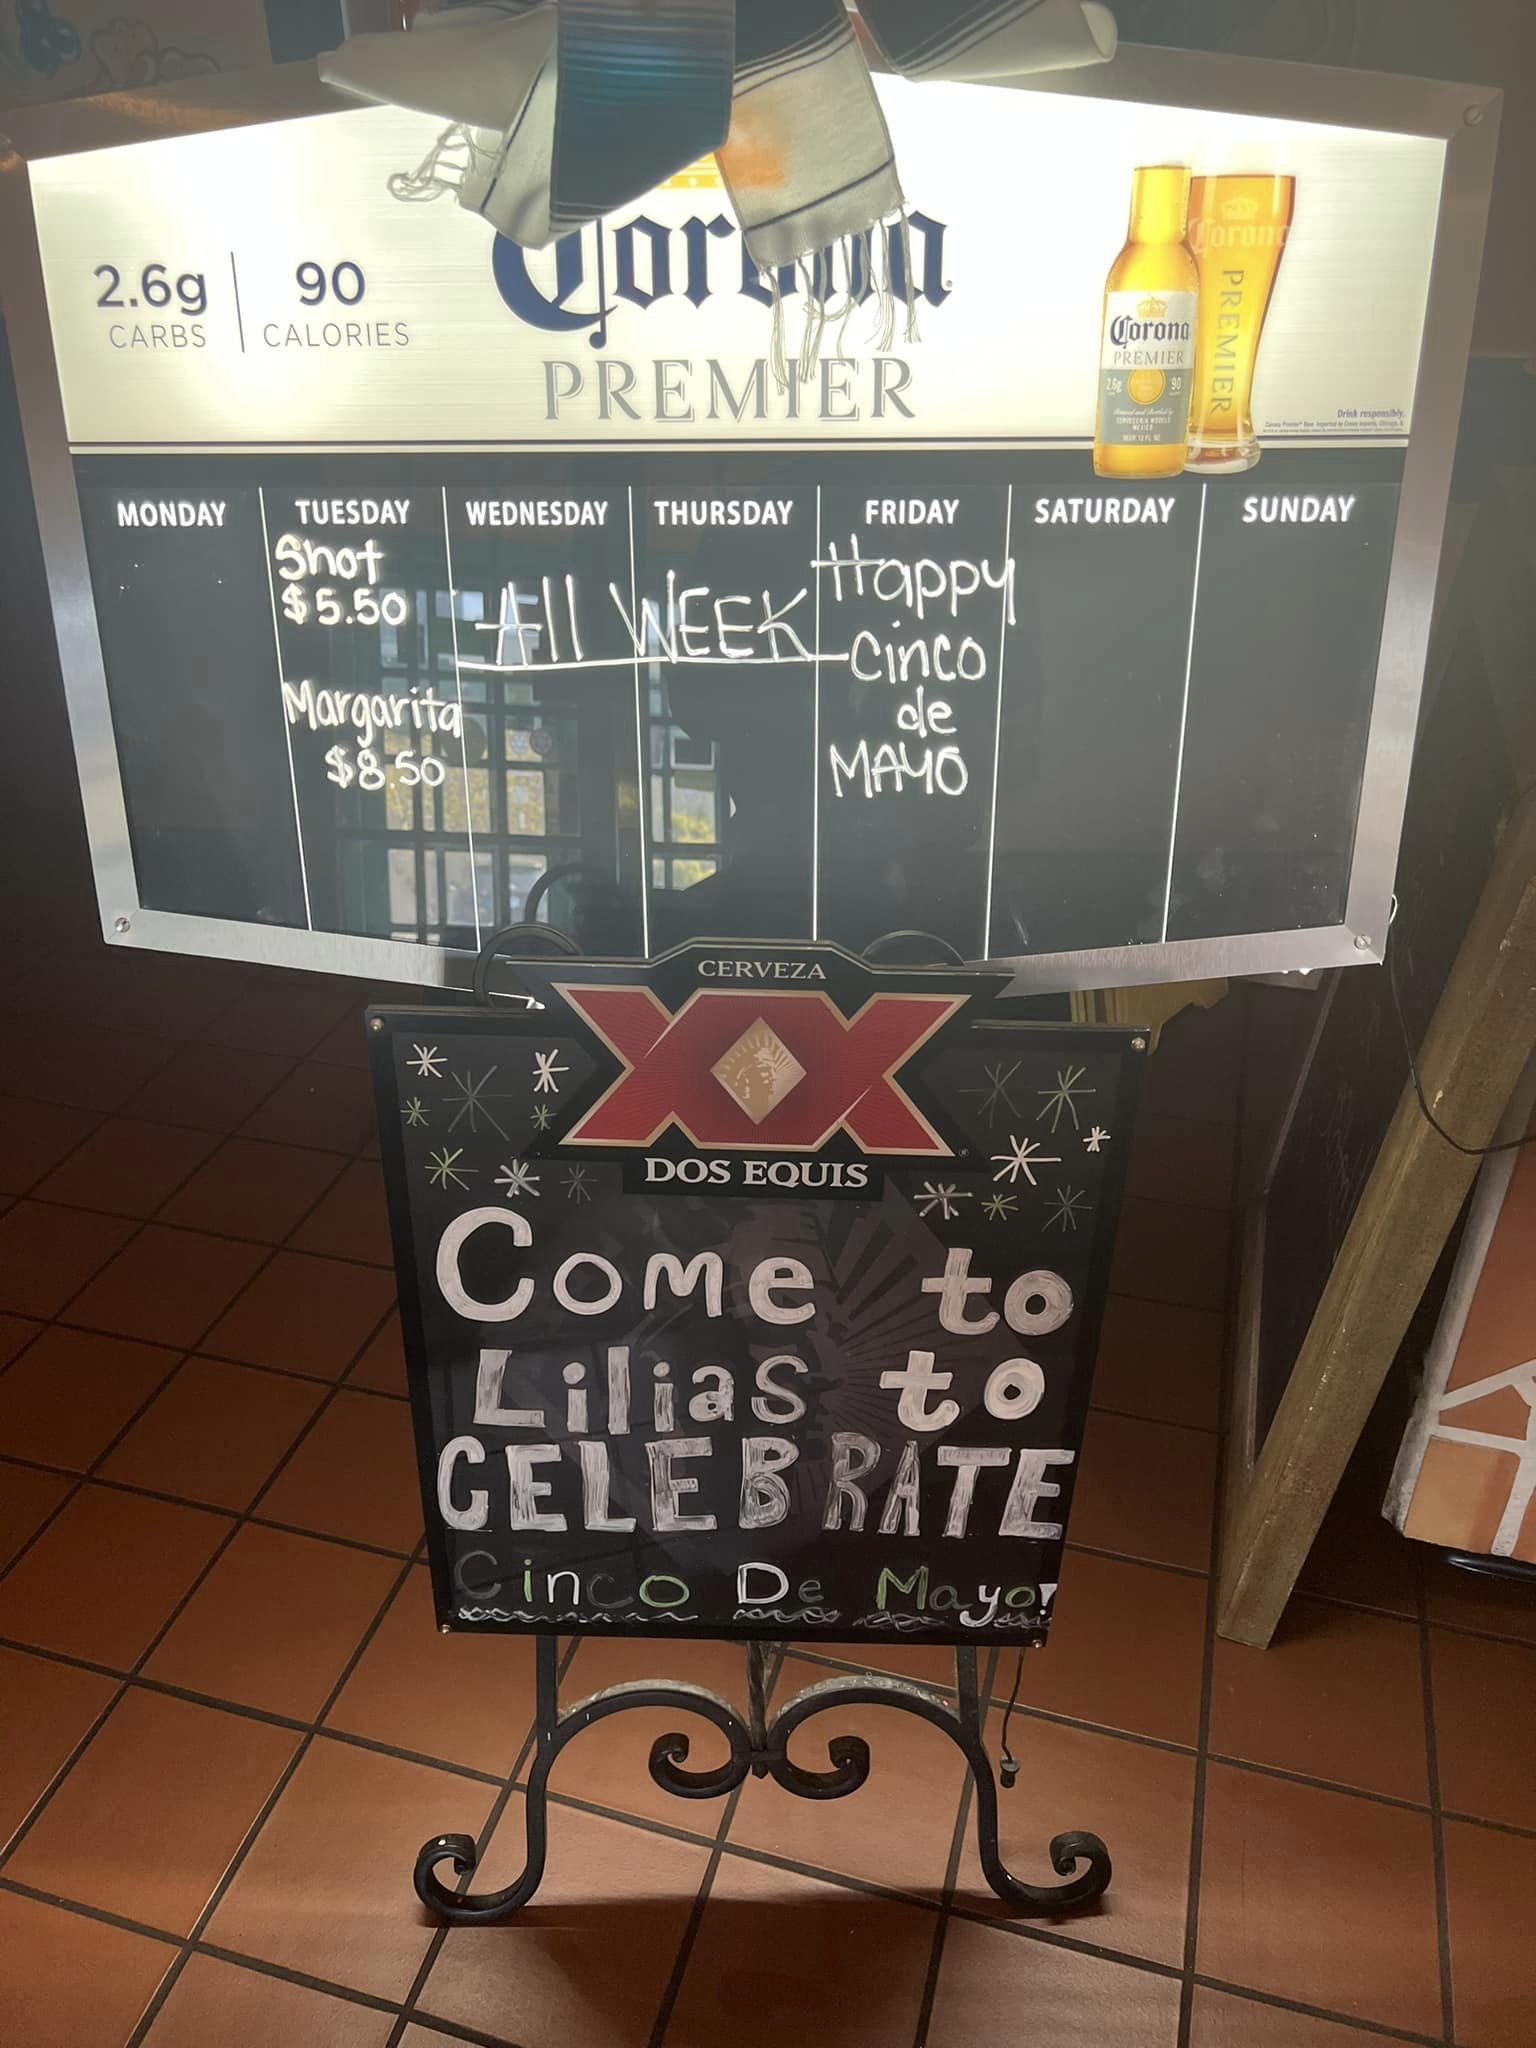 Corona
PREMIER
2.6g
CARBS
90
CALORIES
Corona
PREMIER
2.6g
90
Corona
PREMIER
Drink responsibly.
MONDAY
TUESDAY
WEDNESDAY
THURSDAY
FRIDAY
SATURDAY
SUNDAY
Shot
$5.50
Margarita
$8.50
All WEEK
Happy
Cinco
de
MAYO
CERVEZA
XX
DOS EQUIS
Come to
Lilias to
CELEBRATE
Cinco De Mayo!